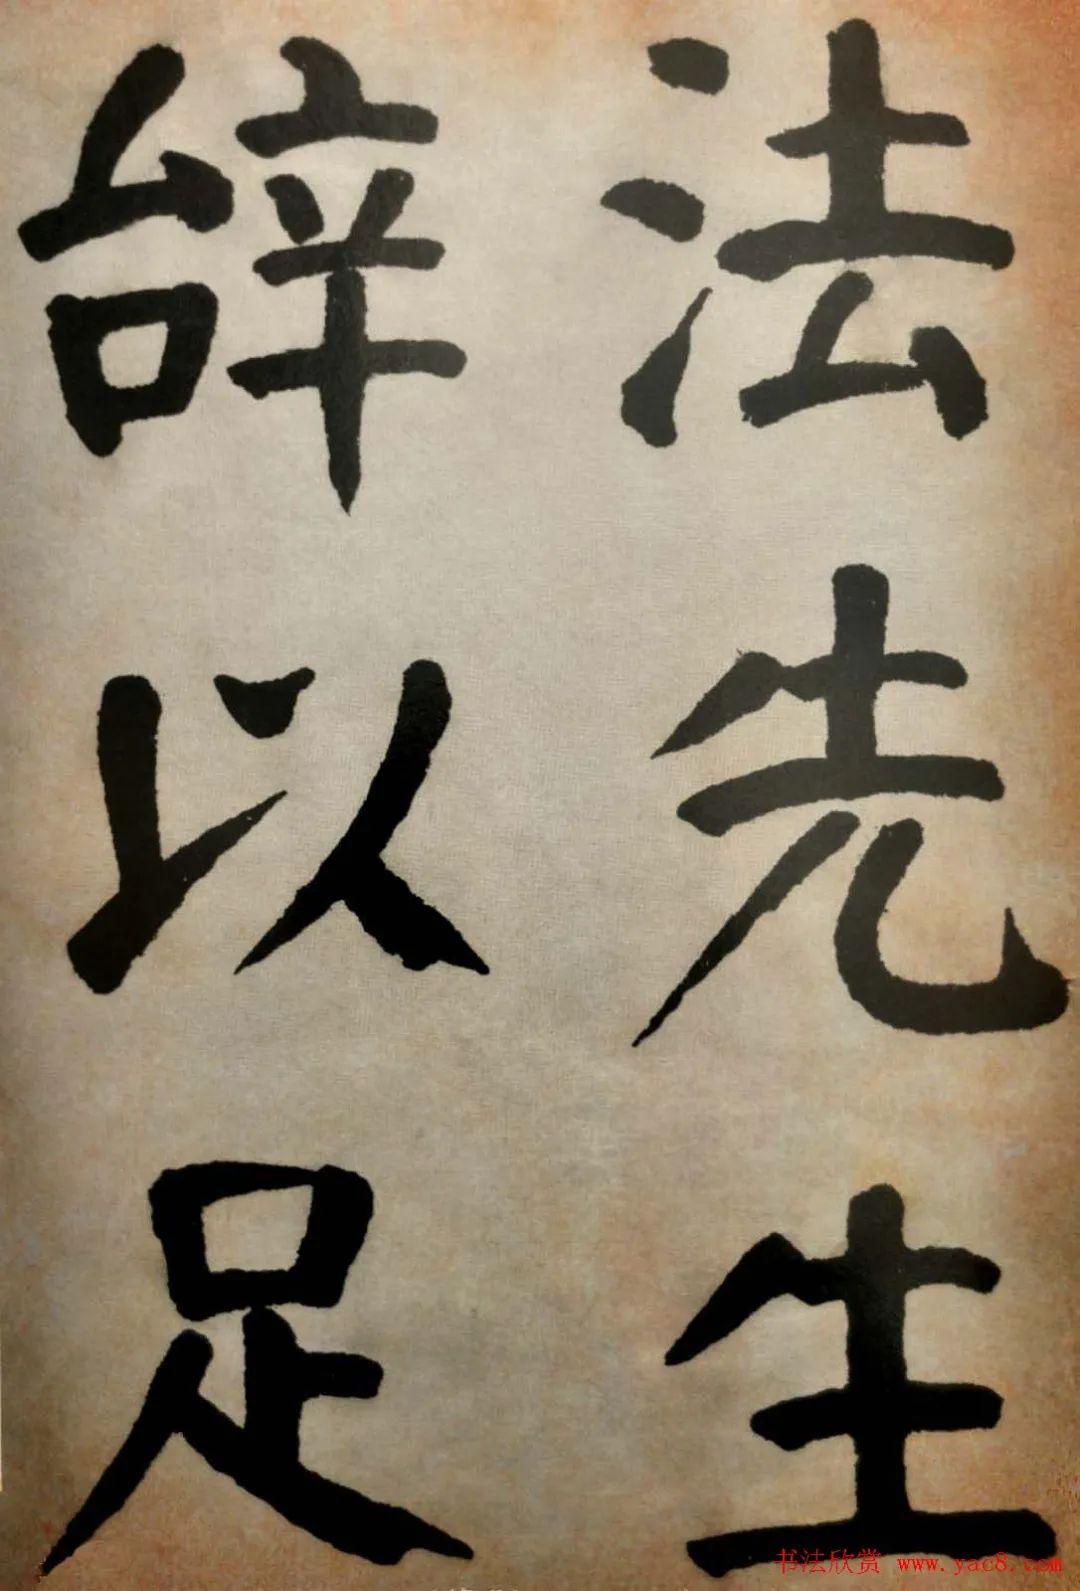 法先生
辞以足
书法欣赏 www.yac8.com